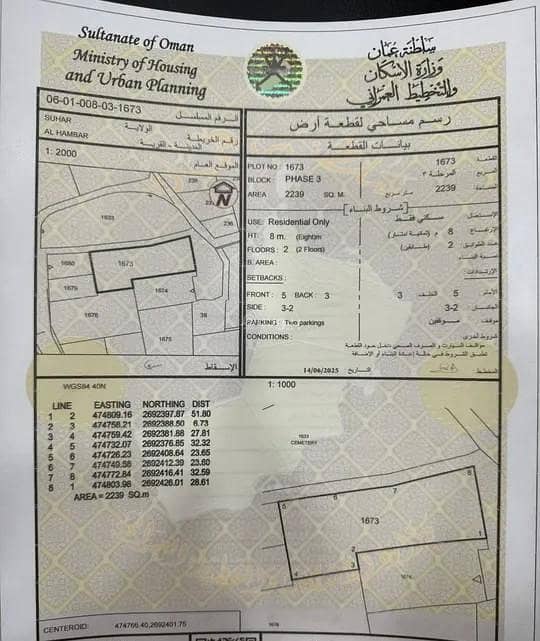 Sultanate of Oman
Ministry of Housing
and Urban Planning
سلطنة عمان
وزارة الإسكان
والتخطيط العمراني
06-01-008-03-1673
الرقم المسلسل
SUHAR
الولاية
رقم الخريطة
AL HAMBAR
المدينة - القرية
1: 2000
الموقع العام
رسم مساحي لقطعة أرض
بيانات القطعة
PLOT NO : 1673
1673
القطعة
BLOCK PHASE 3
المرحلة ٣
المربع
AREA 2239 SQ. M.
متر مربع
2239
المساحة
شروط البناء
USE: Residential Only
سكني فقط
الاستعمال
HT: 8 m. (Eight)m
8 م (ثمانية أمتار)
الإرتفاع
FLOORS: 2 (2 Floors)
2 (طابقين)
عدد الطوابق
B. AREA :
نسبة البناء
SETBACKS :
الإرتدادات
FRONT : 5 BACK : 3
3 الخلف 5 الأمام
SIDE : 3-2
3-2
PARKING : Two parkings
موقفين
موقف
CONDITIONS :
شروط أخرى
مواقف السيارات و الصرف الصحي داخل حدود القطعة
تطبق الشروط في حالة إعادة البناء أو الإضافة
التاريخ 14/06/2025
المخطط
الإسقاط
N
236
236
1633
1680
1673
1679
1674
1676
1675
38
WGS84 40N
1: 1000
LINE EASTING NORTHING DIST
1 2 474809.16 2692397.87 51.80
2 3 474758.21 2692388.50 6.73
3 4 474759.42 2692381.88 27.81
4 5 474732.07 2692376.85 32.32
5 6 474726.23 2692408.64 23.65
6 7 474749.56 2692412.39 23.60
7 8 474772.84 2692416.41 32.59
8 1 474803.98 2692426.01 28.61
AREA = 2239 SQ.m
1633
CEMETERY
8
7
6
5
1673
1
2
3
4
1674
1676
CENTEROID: 474766.40,2692401.75